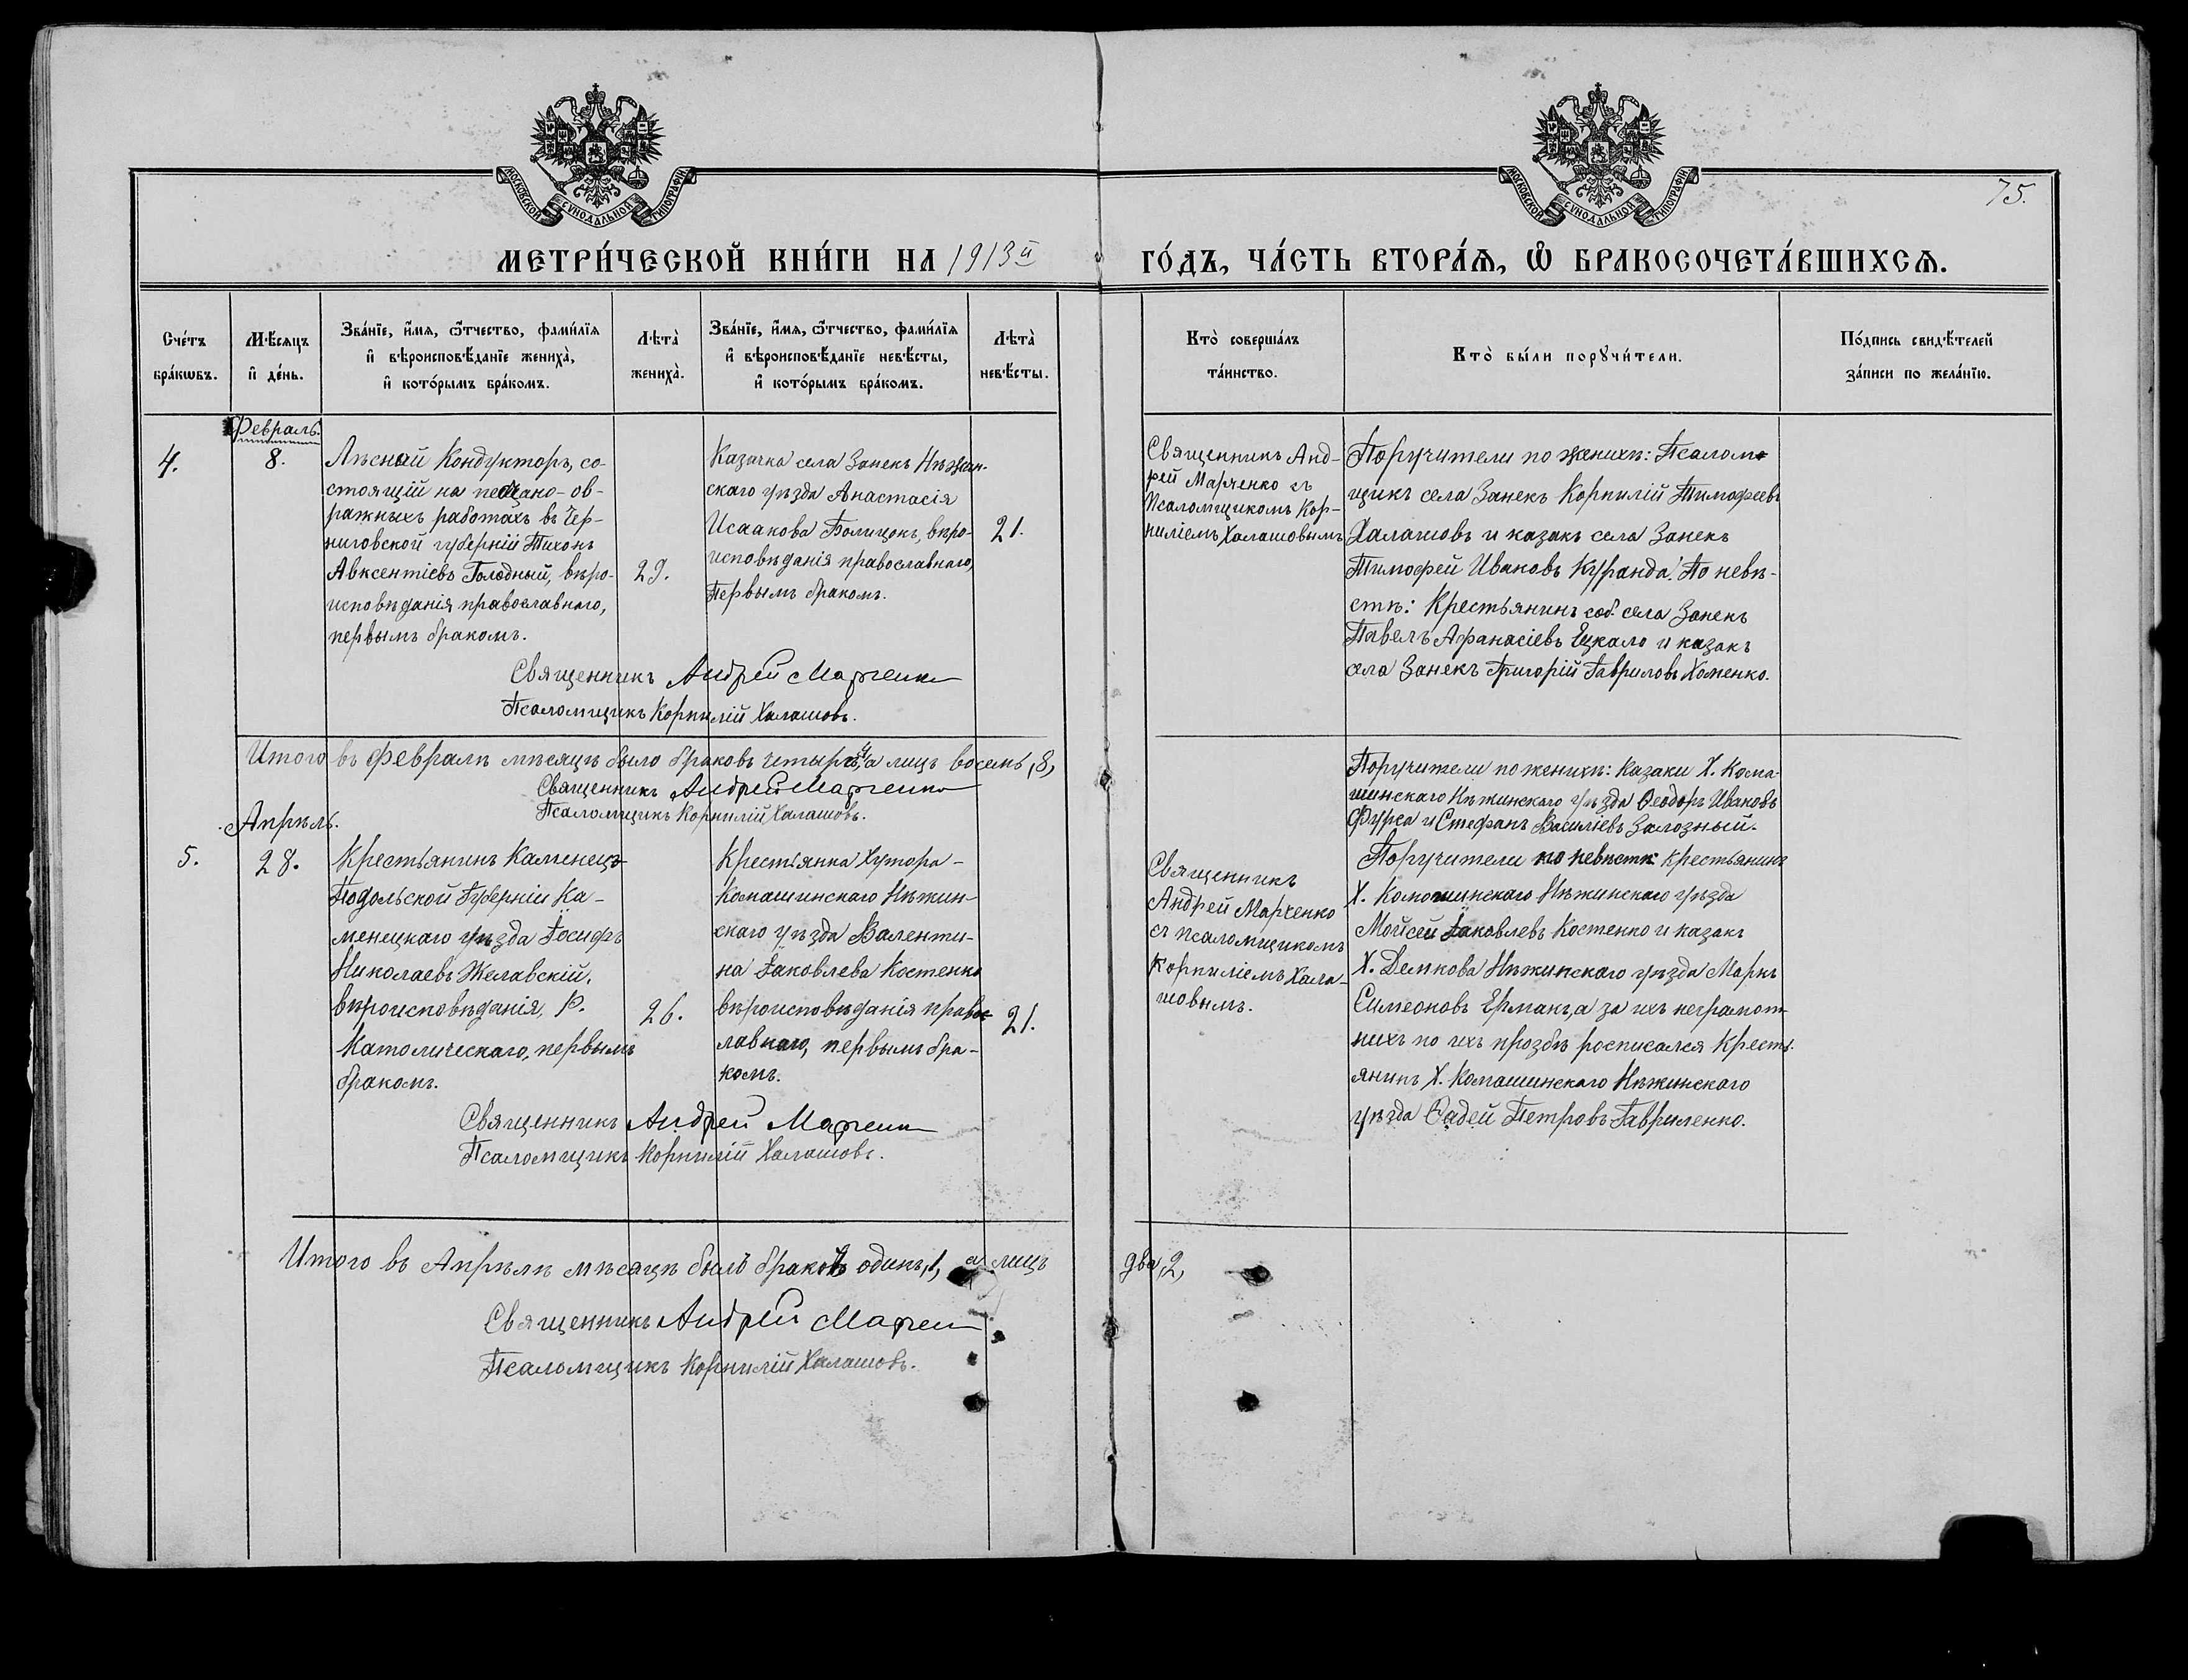 МОСКОВСКОЙ СѴНОДАЛЬНОЙ ТИПОГРАФІИ
МОСКОВСКОЙ СѴНОДАЛЬНОЙ ТИПОГРАФІИ
75.
МЕТРИ́ЧЕСКОЙ КНИ́ГИ НА 1913й
ГО́ДЪ, ЧА́СТЬ ВТОРА́Ѧ, Ѽ БРАКОСОЧЕТА́ВШИХСѦ.
Сче́тъ
бра́кѡвъ.
М́ѣсѧцъ
и҆ де́нь.
Зва́нїе, и҆́мѧ, ѻ҆́тчество, фами́лїѧ
и҆ вѣроисповѣ́данїе жениха̀,
и҆ кото́рымъ бра́комъ.
Лѣта̀
жениха̀.
Зва́нїе, и҆́мѧ, ѻ҆́тчество, фами́лїѧ
и҆ вѣроисповѣ́данїе невѣ́сты,
и҆ кото́рымъ бра́комъ.
Лѣта̀
невѣ́сты.
Кто̀ соверша́лъ
та́инство.
Кто̀ бы́ли порꙋчи́тели.
По́дпись свидѣ́телей
за́писи по жела́нїю.
Февраль.
4.
8.
Лѣсной Кондукторъ, со-
стоящій на песчано-ов-
ражныхъ работахъ въ Чер-
ниговской губерніи Тихонъ
Авксентіевъ Голодный, вѣро-
исповѣданія православнаго,
первымъ бракомъ.
29.
Казачка села Занекъ Нѣжин-
скаго уѣзда Анастасія
Исаакова Болицокъ, вѣро-
исповѣданія православнаго,
Первымъ бракомъ.
21.
Священникъ Анд-
рей Марченко съ
Псаломщикомъ Кор-
ниліемъ Халашовымъ
Поручители по женихѣ: Псалом-
щикъ села Занекъ Корнилій Тимофеевъ
Халашовъ и казакъ села Занекъ
Тимофей Ивановъ Куранда. По невѣ-
стѣ: Крестьянинъ соб. села Занекъ
Павелъ Афанасіевъ Ецкало и казакъ
села Занекъ Григорій Гавриловъ Хоменко.
Священникъ Андрей Марченко
Псаломщикъ Корнилій Халашовъ.
Итого въ Февралѣ мѣсяцѣ было браковъ четыре, 4, а лицъ восемь, 8,
Священникъ Андрей Марченко
Псаломщикъ Корнилій Халашовъ.
Апрѣль.
5.
28.
Крестьянинъ Каменецъ-
Подольской Губерніи Ка-
менецкаго уѣзда Іосифъ
Николаевъ Желавскій,
вѣроисповѣданія, Р.
Католическаго, первымъ
бракомъ.
26.
Крестьянка Хутора-
Комашинскаго Нѣжин-
скаго уѣзда Валенти-
на Іаковлева Костенко
вѣроисповѣданія правос-
лавнаго, первымъ бра-
комъ.
21.
Священникъ
Андрей Марченко
съ псаломщикомъ
Корниліемъ Хала-
шовымъ.
Поручители по женихѣ: Казаки Х. Кома-
шинскаго Нѣжинскаго уѣзда Ѳеодоръ Ивановъ
Фурса и Стефанъ Василіевъ Залозный.
Поручители по невѣстѣ: Крестьянинъ
Х. Комошинскаго Нѣжинскаго уѣзда
Мойсей Іаковлевъ Костенко и казакъ
Х. Демкова Нѣжинскаго уѣзда Маркъ
Симеоновъ Ермакъ, а за ихъ неграмот-
нихъ по ихъ прозбѣ росписался Кресть-
янинъ Х. Комашинскаго Нѣжинскаго
уѣзда Ѳадей Петровъ Гавриленко.
Священникъ Андрей Марченко
Псаломщикъ Корнилій Халашовъ.
Итого въ Апрѣлѣ мѣсяцѣ было браковъ одинъ, 1, а лицъ два, 2,
Священникъ Андрей Марченко
Псаломщикъ Корнилій Халашовъ.